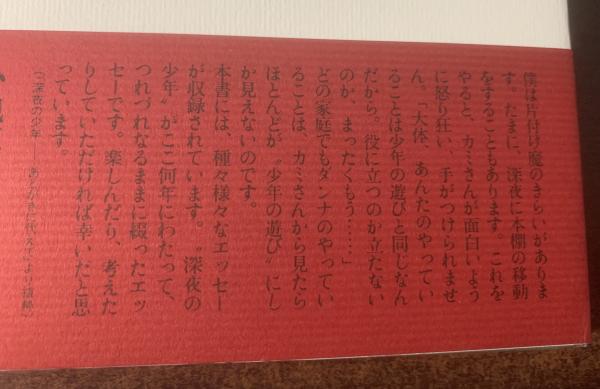 僕は片付け魔のきらいがありま
す。たまに、深夜に本棚の移動
をすることもあります。これを
やると、カミさんが面白いよう
に怒り狂い、手がつけられませ
ん。「大体、あんたのやってい
ることは少年の遊びと同じなん
だから。役に立つのか立たない
のか、まったくもう……」
どの家庭でもダンナのやってい
ることは、カミさんから見たら
ほとんどが〝少年の遊び〟にし
か見えないのです。
本書には、種々様々なエッセー
が収録されています。〝深夜の
少年〟がここ何年にわたって、
つれづれなるままに綴ったエッ
セーです。楽しんだり、考えた
りしていただければ幸いだと思
っています。
（「深夜の少年――あとがきに代えて」より抜粋）